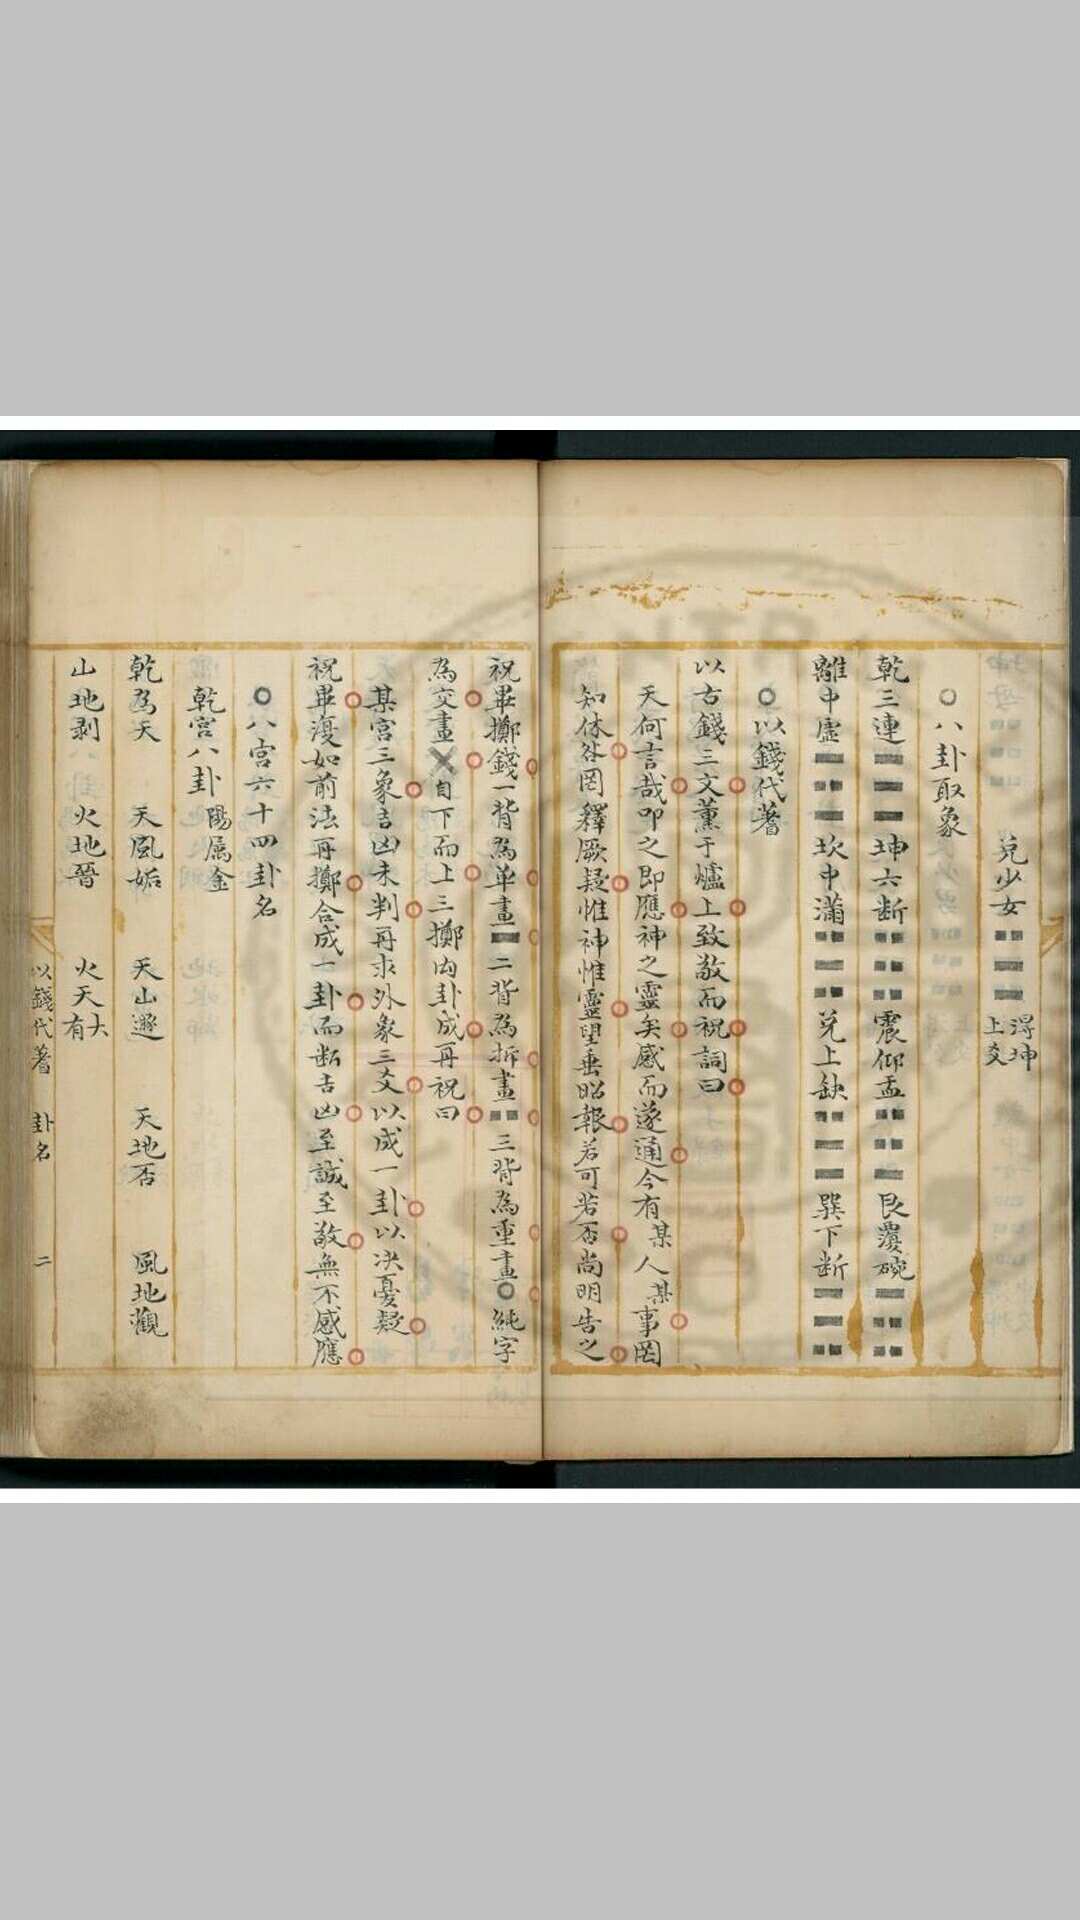 兌少女☱得坤上爻
○八卦取象
乾三連☰坤六断☷震仰盂☳艮覆碗☶
離中虛☲坎中滿☵兌上缺☱巽下断☴
○以錢代蓍
以古錢三文薰于爐上致敬而祝詞曰
天何言哉叩之即應神之靈矣感而遂通今有某人某事罔
知休咎罔釋厥疑惟神惟靈望垂昭報若可若否尚明告之
祝畢擲錢一背為单畫⚊二背為拆畫⚋三背為重畫○純字
為交畫✕自下而上三擲内卦成再祝曰
某宮三象吉凶未判再求外象三爻以成一卦以决憂疑
祝畢復如前法再擲合成一卦而断吉凶至誠至敬無不感應
○八宮六十四卦名
乾宮八卦 陽属金
乾為天 天風姤 天山遯 天地否 風地觀
山地剥 火地晉 火天大有
以錢代蓍 卦名 二